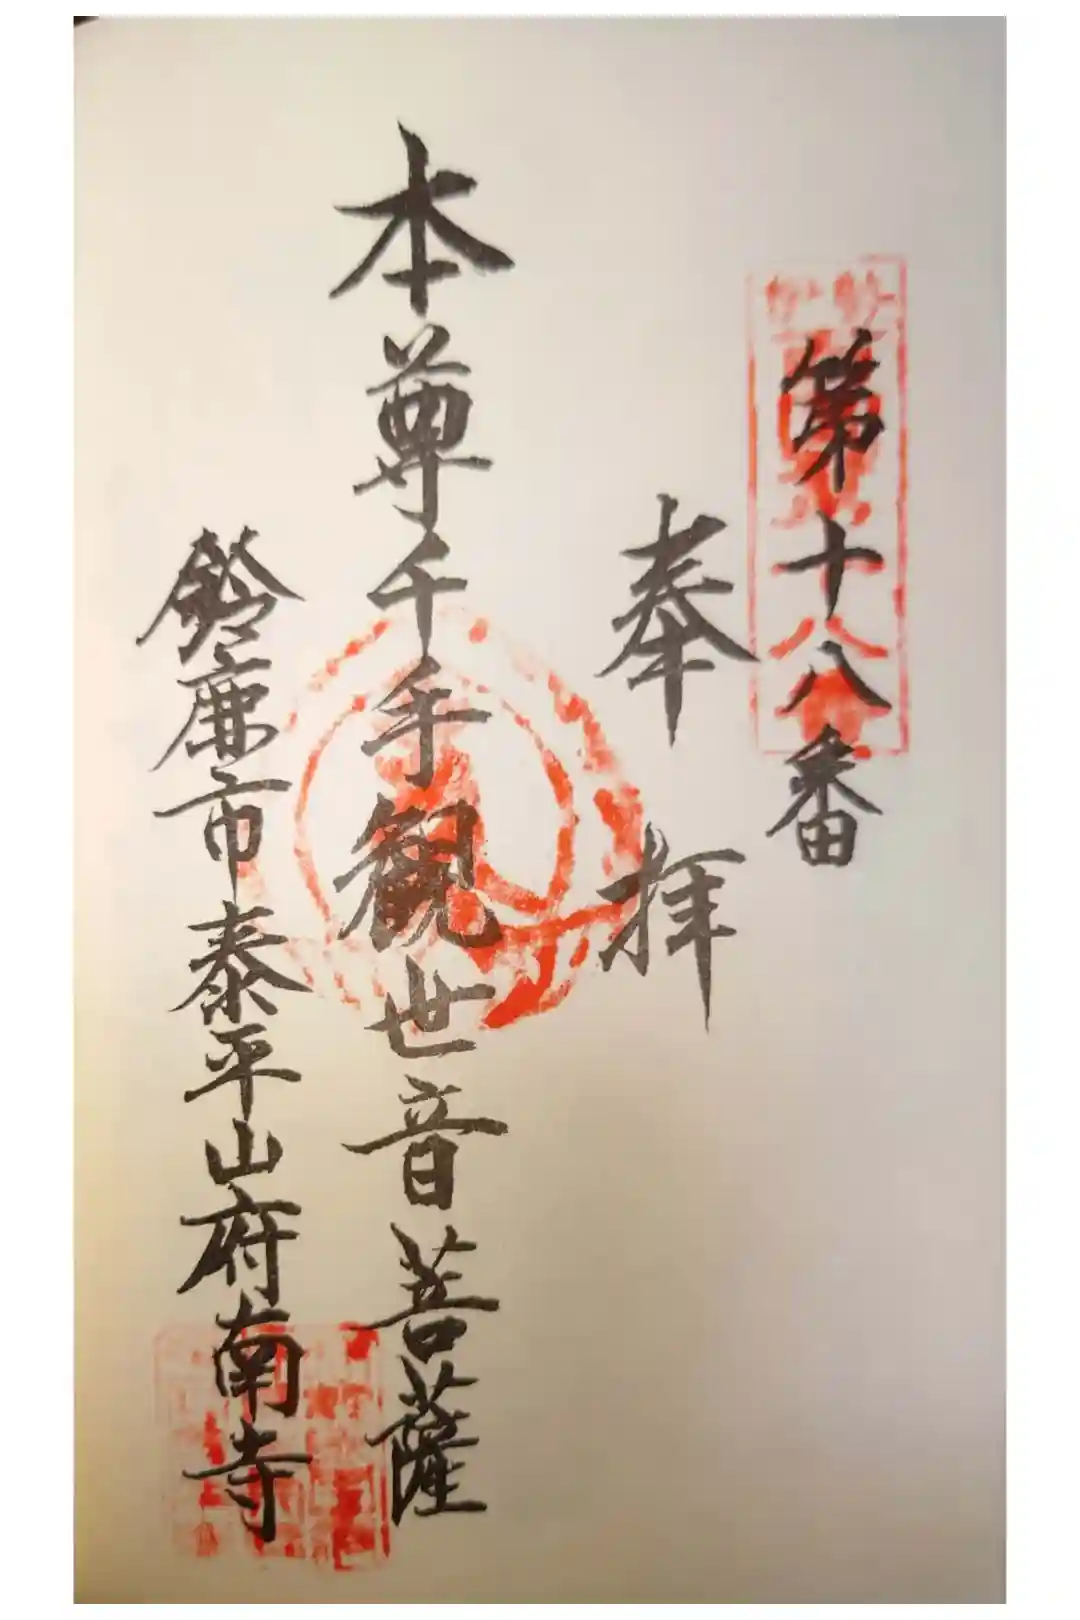 第十八番
奉拝
本尊千手観世音菩薩
鈴鹿市泰平山府南寺